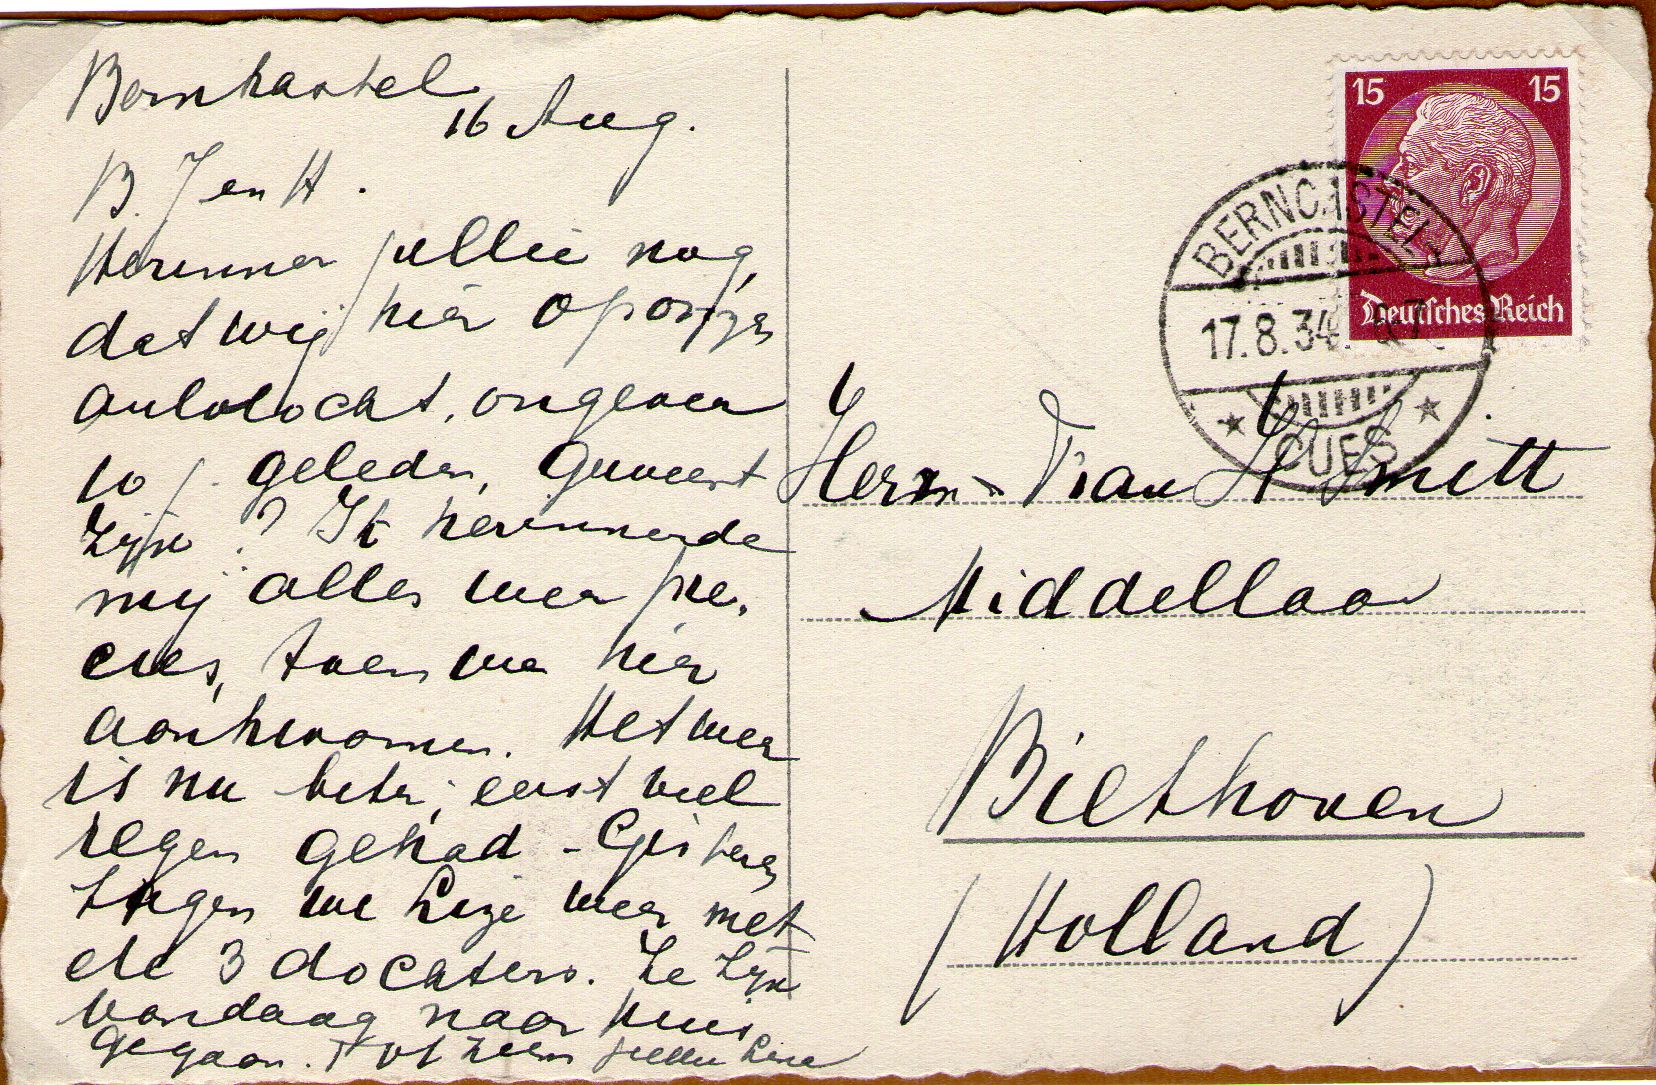 Bernkastel
16 Aug.
B. J en H.
Herinner jullie nog,
dat wij hier op onze
autotocht, ongeveer
10 j. geleden, geweest
zijn? Ik herinnerde
mij alles weer pre-
cies, toen we hier
aankwamen. Het weer
is nu beter, eerst veel
regen gehad - Gisteren
zagen we Lize weer met
de 3 dochters. Ze zijn
vandaag naar huis
gegaan. Tot ziens jullie
15 15
Deutsches Reich
BERNCASTEL
17.8.34.
CUES
Herrn Frau H Smitt
Middellaan
Bilthoven
(Holland)